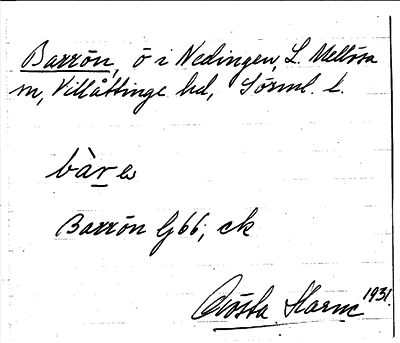 Barrön, ö i Nedingen, L. Mellösa
sn, Villåttinge hd, Sörml. l.
bàr e
Barrön G66; ek
Gösta Harne 1931.